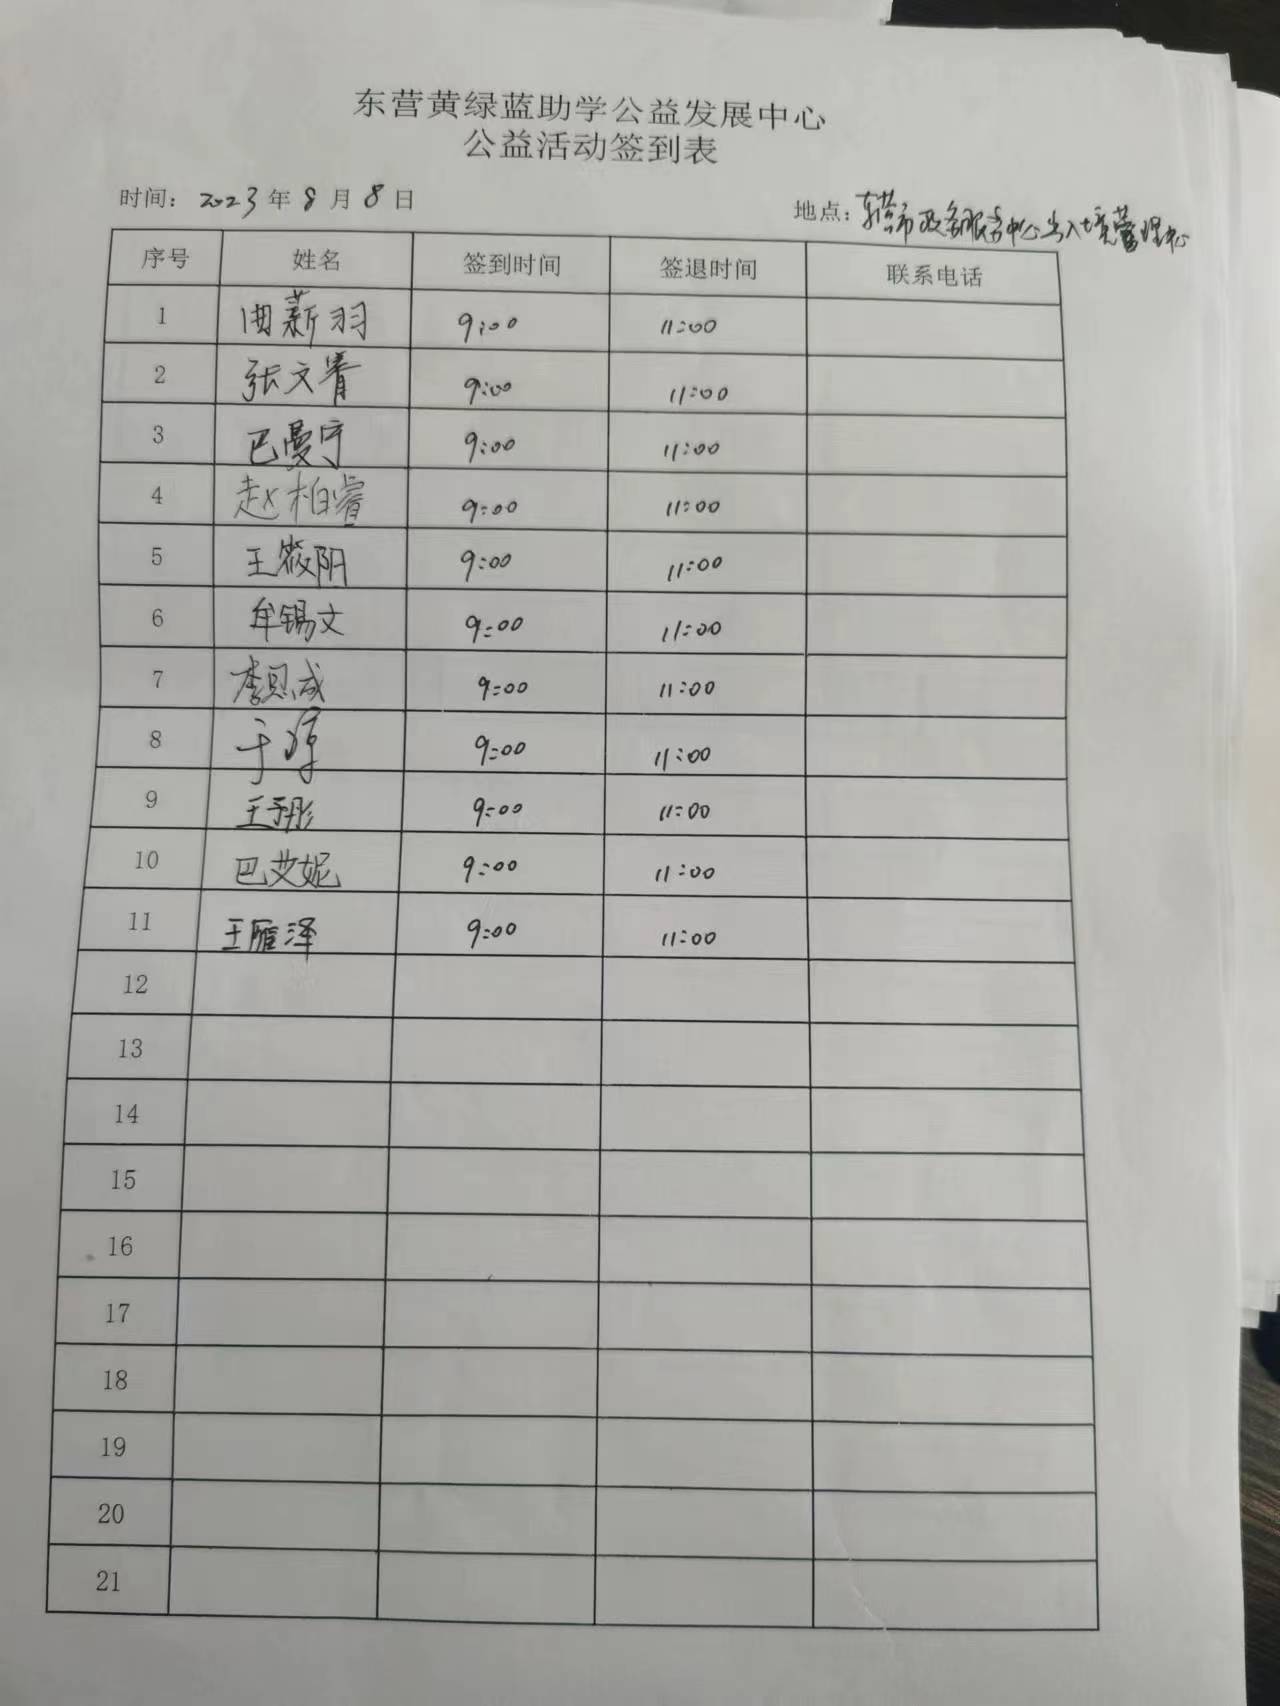 东营黄绿蓝助学公益发展中心
公益活动签到表
时间: 2023年8月8日
地点: 东营市政务服务中心出入境管理中心
序号 姓名 签到时间 签退时间 联系电话
1 曲薪羽 9:00 11:00
2 张文睿 9:00 11:00
3 巴曼宁 9:00 11:00
4 赵柏睿 9:00 11:00
5 王筱阳 9:00 11:00
6 牟锡文 9:00 11:00
7 李思成 9:00 11:00
8 于 9:00 11:00
9 王予彤 9:00 11:00
10 巴艾妮 9:00 11:00
11 王雁泽 9:00 11:00
12
13
14
15
16
17
18
19
20
21